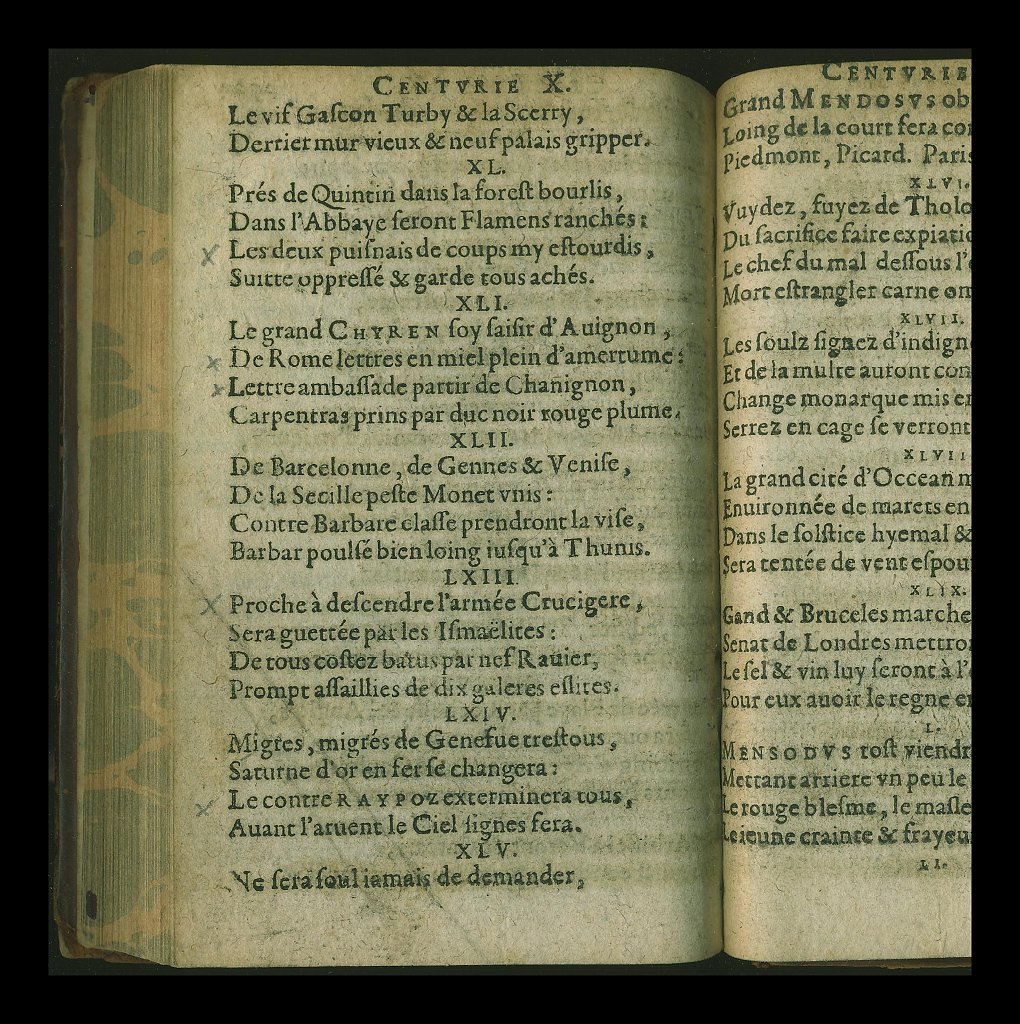 CENTVRIE X.
Le vif Gaſcon Turby & la Scerry,
Derrier mur vieux & neuf palais gripper.
XL.
Prés de Quintin dans la foreſt bourlis,
Dans l'Abbaye ſeront Flamens ranchés:
Les deux puiſnais de coups my eſtourdis,
Suitte oppreſſé & garde tous achés.
XLI.
Le grand CHYREN ſoy ſaiſir d'Auignon,
De Rome lettres en miel plein d'amertume:
Lettre ambaſſade partir de Chanignon,
Carpentras prins par duc noir rouge plume.
XLII.
De Barcelonne, de Gennes & Veniſe,
De la Secille peſte Monet vnis:
Contre Barbare claſſe prendront la viſe,
Barbar poulſé bien loing iuſqu'à Thunis.
LXIII.
Proche à deſcendre l'armée Crucigere,
Sera guettée par les Iſmaëlites:
De tous coſtez batus par nef Rauier,
Prompt aſſaillies de dix galeres eſlites.
LXIV.
Migres, migrés de Geneſue treſtous,
Saturne d'or en fer ſe changera:
Le contre RAYPOZ exterminera tous,
Auant l'aruent le Ciel ſignes fera.
XLV.
Ne ſera ſoul iamais de demander,
CENTVRIE
Grand MENDOSVS ob
Loing de la court fera co
Piedmont, Picard. Paris
XLVI.
Vuydez, fuyez de Tholo
Du ſacrifice faire expiatio
Le chef du mal deſſous l'
Mort eſtrangler carne om
XLVII.
Les ſoulz ſignez d'indign
Et de la multe auront con
Change monarque mis en
Serrez en cage ſe verront
XLVII
La grand cité d'Occean m
Enuironnée de marets en
Dans le ſolſtice hyemal &
Sera tentée de vent eſpou
XLIX.
Gand & Bruceles marche
Senat de Londres mettro
Le ſel & vin luy ſeront à l'
Pour eux auoir le regne en
L.
MENSODVS toſt viendr
Mettant arriere vn peu le
Le rouge bleſme, le maſle
Le ieune crainte & frayeu
LI.